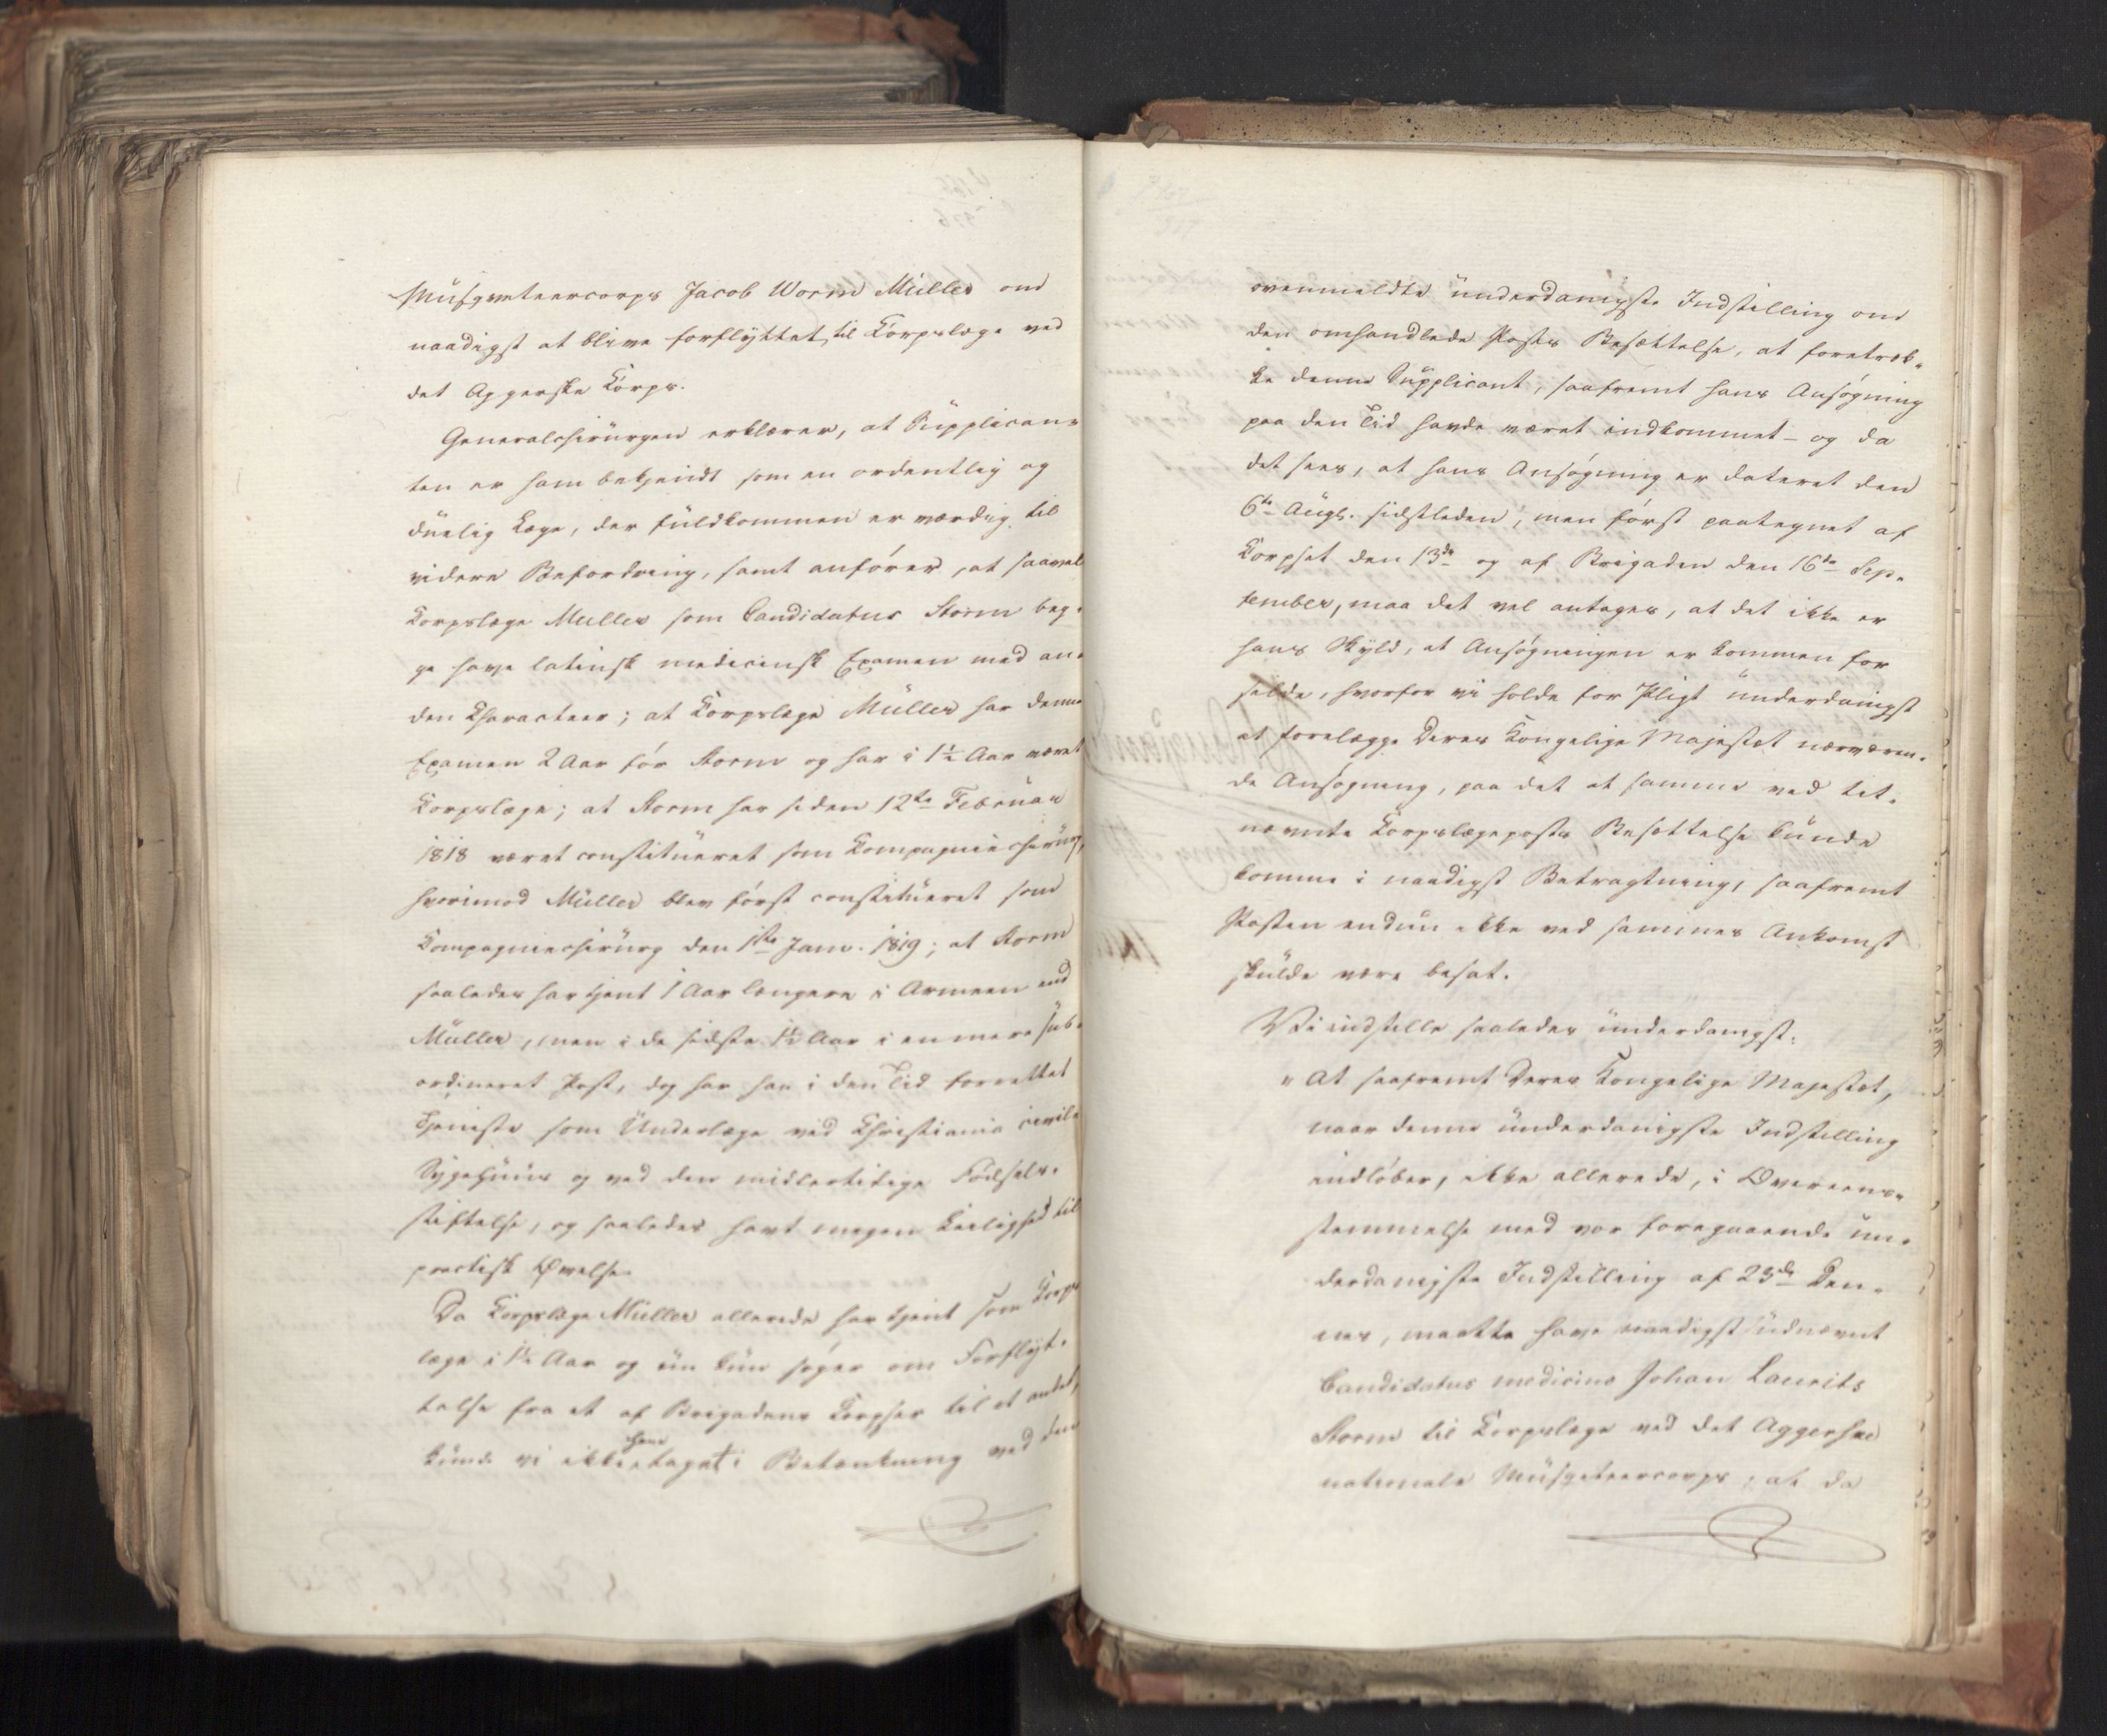 Musqueteercorps Jacob Worm Müller om
naadigst at blive forflyttet til Korpslæge ved
det Aggerske Korps.
Generalchirurgen erklærer, at Supplican-
ten er ham bekjendt som en ordentlig og
duelig Læge, der fuldkommen er værdig til
videre Befordring, samt anfører, at saavel
Korpslæge Müller som Candidatus Storm beg-
ge have latinsk medicinsk Examen med an-
den Characteer; at Korpslæge Müller har denne
Examen 2 Aar før Storm og har i 1½ Aar været
Korpslæge; at Storm har siden 12te Februar
1818 været constitueret som Kompagniechirurg,
hvorimod Müller blev først constitueret som
Kompagniechirurg den 1ste Janv. 1819; at Storm
saaledes har tjent 1 Aar længere i Armeen end
Müller, men i de sidste 1½ Aar i en mere sub-
ordineret Post, dog har han i den Tid forrettet
Tjeneste som Underlæge ved Christiania civile
Sygehuus og ved den midlertidige Fødsels-
stiftelse, og saaledes havt megen Leilighed til
practisk Øvelse.
Da Korpslæge Müller allerede har tjent som Korps
læge i 1½ Aar og nu kun søger om Forflyt-
telse fra et af Brigadens Korpser til et andet,
kunde vi ikke have taget i Betænkning ved den
ovenmeldte underdanigste Indstilling om
den omhandlede Posts Besættelse, at foretræk-
ke denne Supplicant, saafremt hans Ansøgning
paa den Tid havde været indkommet - og da
det sees, at hans Ansøgning er dateret den
6te Augt. sidstleden, men først paategnet af
Korpset den 13de og af Brigaden den 16de Sep-
tember, maa det vel antages, at det ikke er
hans Skyld, at Ansøgningen er kommen for
silde, hvorfor vi holde for Pligt underdanigst
at forelægge Deres Kongelige Majestæt nærværen-
de Ansøgning, paa det at samme ved bet.
nævnte Korpslægeposts Besættelse kunde
komme i naadigst Betragtning, saafremt
Posten endnu ikke ved sammes Ankomst
skulde være besat.
Vi indstille saaledes underdanigst:
" At saafremt Deres Kongelige Majestæt,
naar denne underdanigste Indstilling
indløber, ikke allerede, i Overeens-
stemmelse med vor foregaaende un-
derdanigste Indstilling af 23de den-
nes, maatte have naadigst udnævnt
Candidatus medicinæ Johan Laurits
Storm til Korpslæge ved det Aggershuus
nationale Musqueteercorps, at da